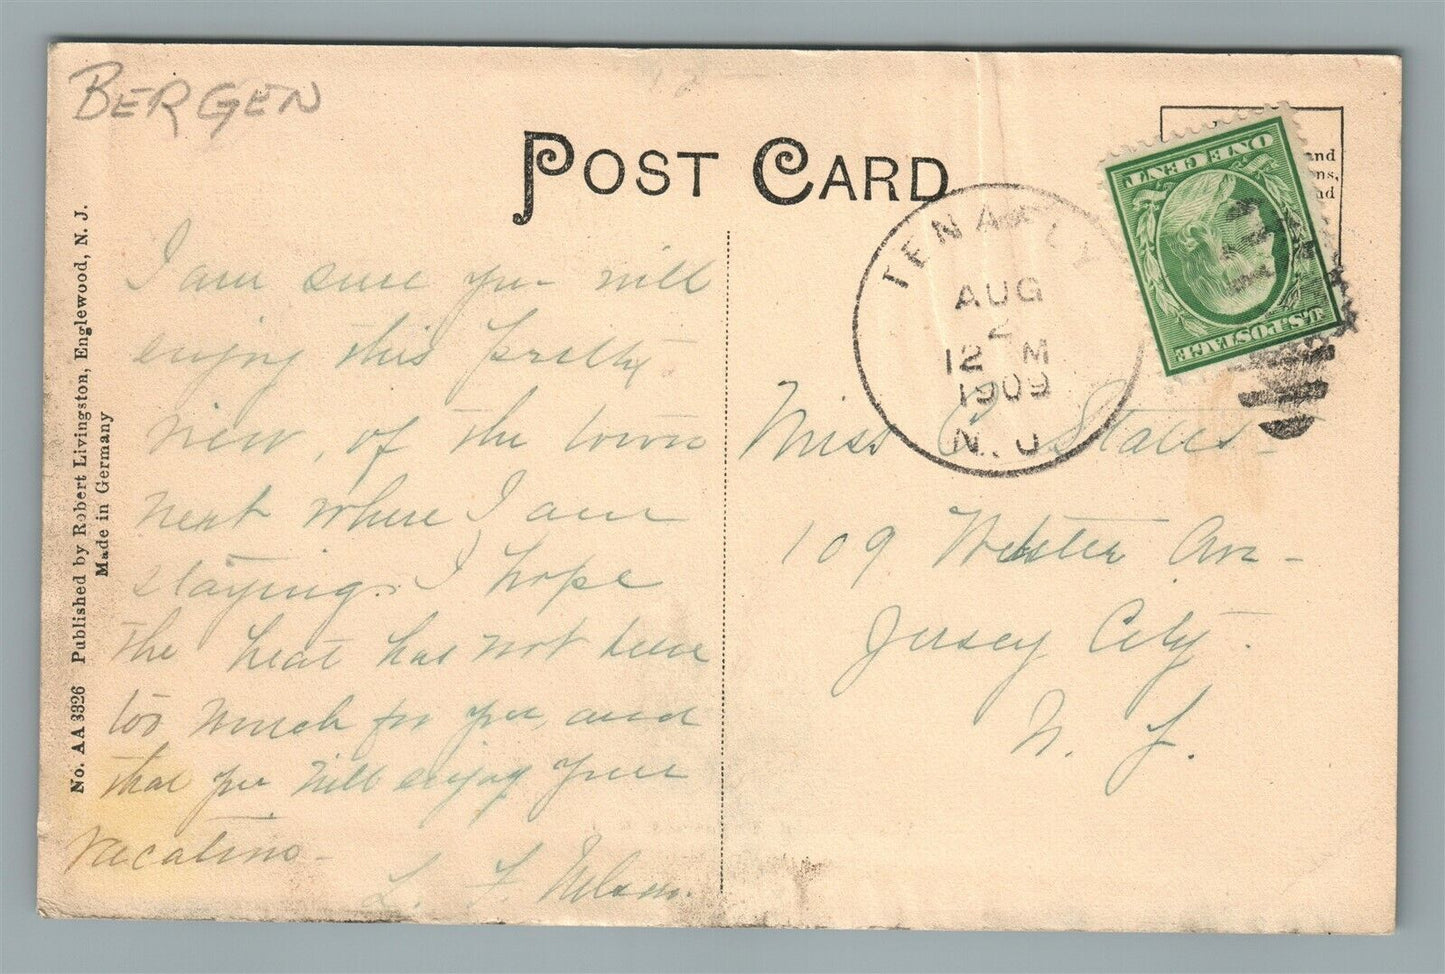 BERGEN
POST CARD
ONE CENT
U.S. POSTAGE
and
ns,
nd
TENAFLY
AUG
2
12 M
1909
N. J.
No. AA 3326 Published by Robert Livingston, Englewood, N. J.
Made in Germany
I am sure you will
enjoy this pretty
view, of the town
next where I am
staying. I hope
the heat has not been
too much for you, and
that you will enjoy your
vacation-
L. F. Nelson.
Miss C. States-
109 Webster Ave-
Jersey City.
N. J.